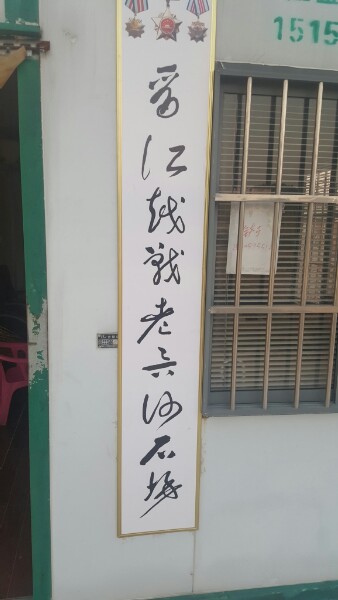 晋江越战老兵沙石场
1515